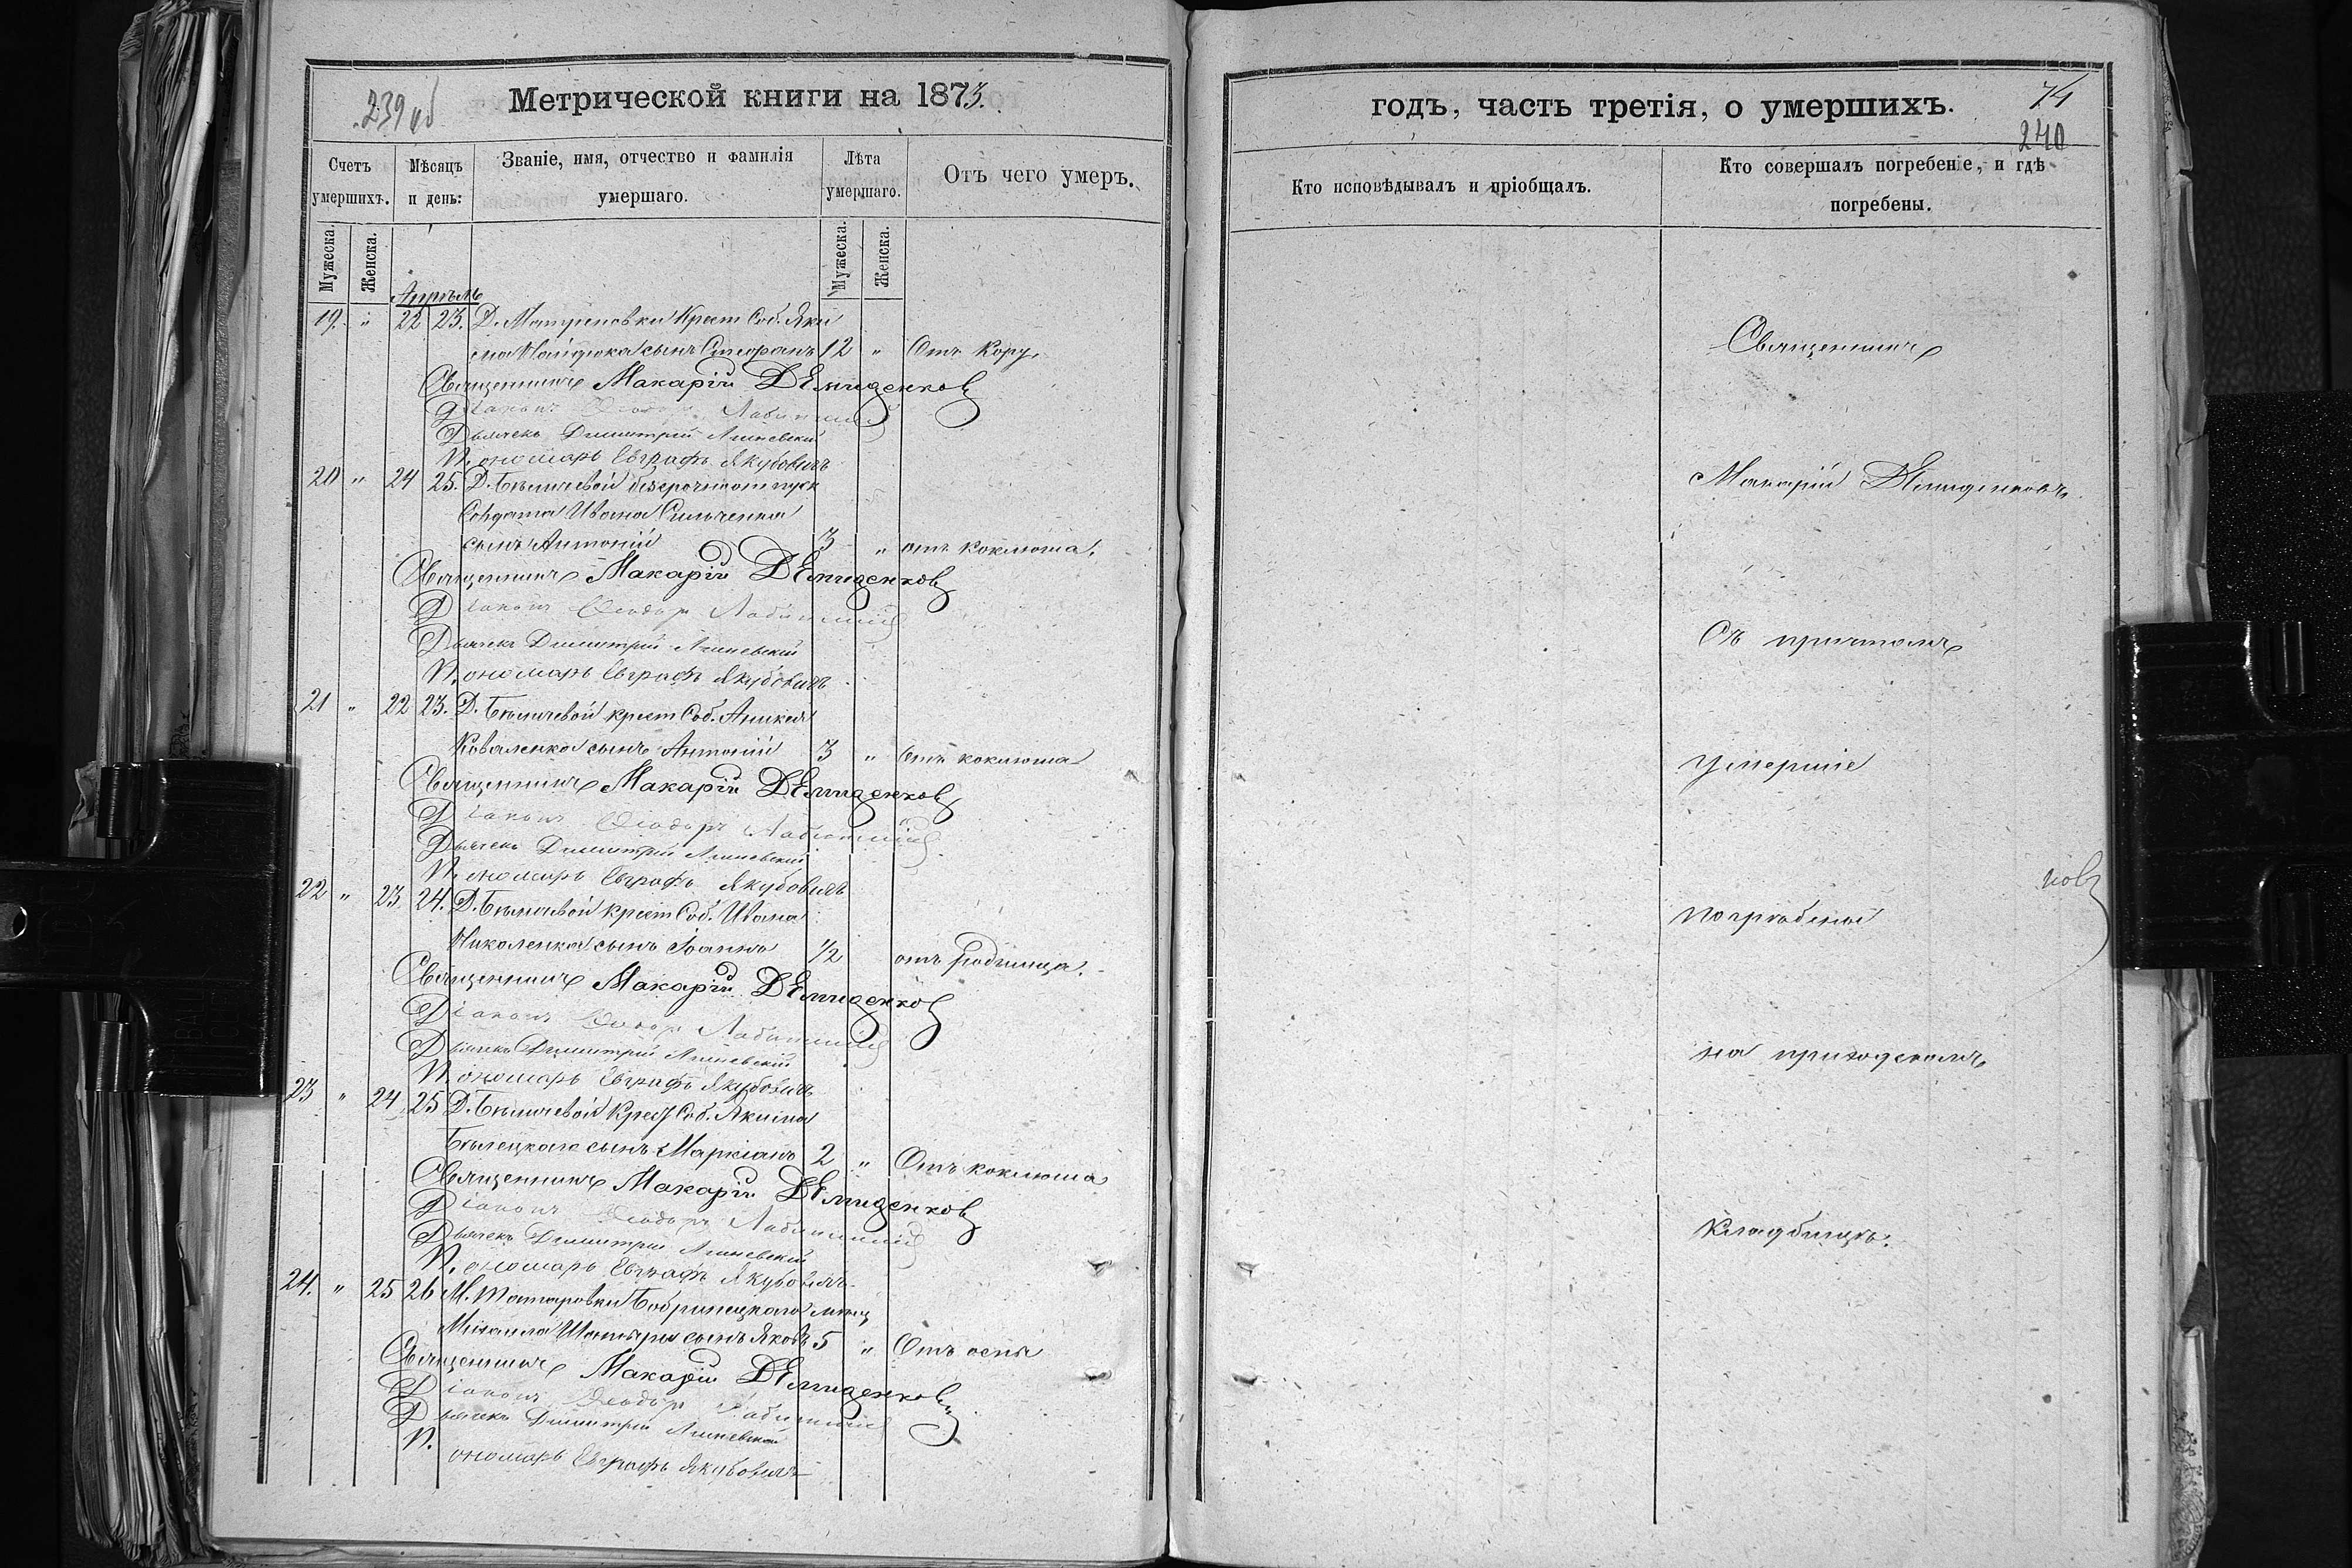 239 об
Метрической книги на 1873.
Счетъ умершихъ.
Мѣсяцъ и день:
Званіе, имя, отчество и фамилія умершаго.
Лѣта умершаго.
Отъ чего умеръ.
Мужеска.
Женска.
Мужеска.
Женска.
Апрѣль
19. " 22 23. Д. Матреновки Крест Соб. Яки
ма сынъ Стефанъ 12 " Отъ Кору.
Священникъ Макарій Демиденковъ
Діаконъ Ѳеодоръ
Дьячекъ Димитрій
Пономарь Евграфъ Якубовичъ
20 " 24 25. Д. Бѣличевой безсрочноотпуск
Солдата Ивана Сильченка
сынъ Антоній 3 " отъ коклюша.
Священникъ Макарій Демиденковъ
Діаконъ Ѳеодоръ
Дьячекъ Димитрій
Пономарь Евграфъ Якубовичъ
21 " 22 23. Д. Бѣличевой крест Соб. Аникея
Коваленка сынъ Антоній 3 " отъ коклюша
Священникъ Макарій Демиденковъ
Діаконъ Ѳеодоръ
Дьячекъ Димитрій
Пономарь Евграфъ Якубовичъ
22 " 23 24. Д. Бѣличевой крест Соб. Ивана
Николенка сынъ Іоаннъ 1/2 отъ родимца.
Священникъ Макарій Демиденковъ
Діаконъ Ѳеодоръ
Дьячекъ Димитрій
Пономарь Евграфъ Якубовичъ
23 " 24 25 Д. Бѣличевой Крест Соб. Якима
Бѣлецкаго сынъ Маркіанъ 2 " Отъ коклюша
Священникъ Макарій Демиденковъ
Діаконъ Ѳеодоръ
Дьячекъ Димитрій
Пономарь Евграфъ Якубовичъ
24. " 25 26 М. Татаровки Бобринецкаго мѣщ
Михаила сынъ Яковъ 5 " Отъ оспы
Священникъ Макарій Демиденковъ
Діаконъ Ѳеодоръ
Дьячекъ Димитрій
Пономарь Евграфъ Якубовичъ
годъ, часть третія, о умершихъ.
74
240
Кто исповѣдывалъ и пріобщалъ.
Кто совершалъ погребеніе, и гдѣ погребены.
Священникъ
Макарій Демиденковъ
Съ причтомъ
Умершіе
новъ
погребены
на приходскомъ
кладбищѣ.